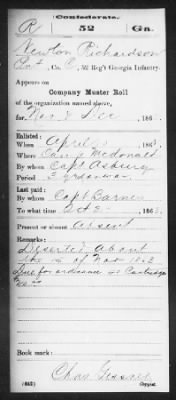 Confederate.
R 52 Ga.
Newton Richardson
Pvt, Co. C, 52 Reg't Georgia Infantry.
Appears on
Company Muster Roll
of the organization named above,
for Nov & Dec, 186
Enlisted:
When April, 186
Where Camp McDonald
By whom Capt Asbury
Period 3 yrs or war
Last paid:
By whom Capt Barnes
To what time Oct 31, 186
Present or absent Absent
Remarks:
Deserted about
the 15 of Nov 1862
Due for ordinance 40 Cartridges
Book mark:
(642) Copyist.